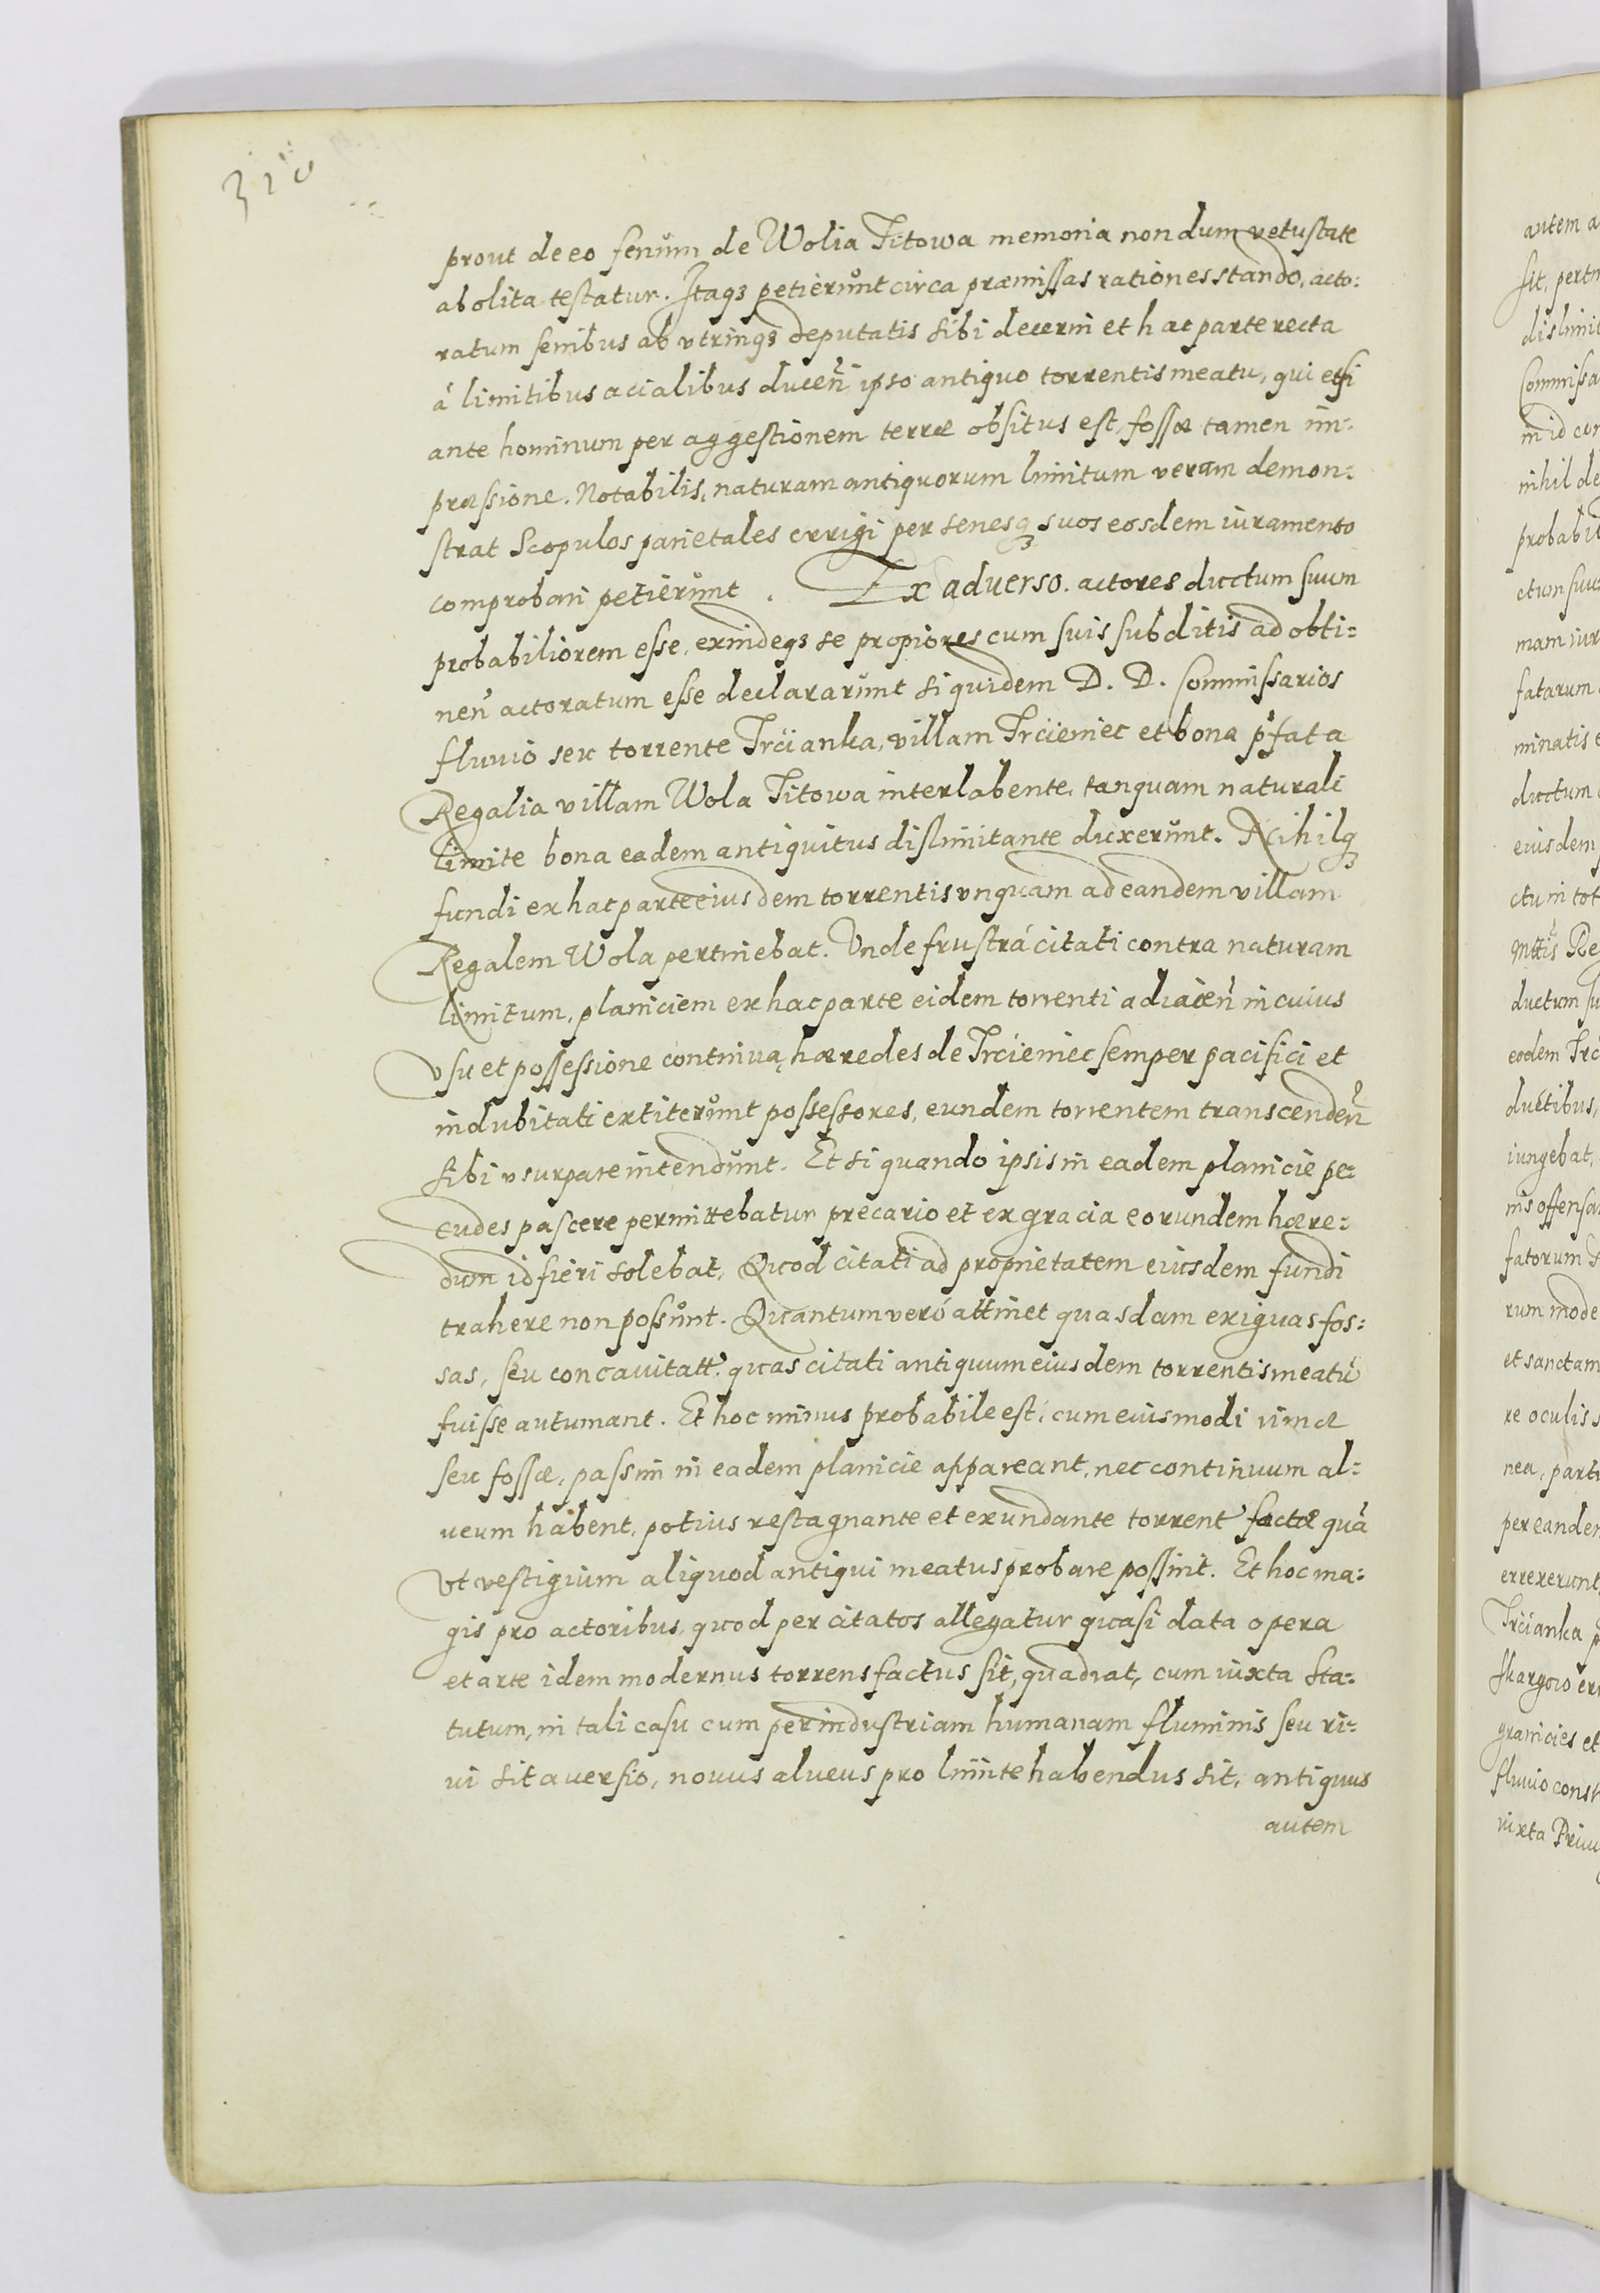 prout de eo senum de Wolia Titowa memoria nondum vetustate
abolita testatur. Itaqз petierunt circa præmissas rationes stando, acto:
ratum senibus ab vtrinqз deputatis sibi decerni et hac parte recta
á limitibus acialibus ducen̄ ipso antiquo torrentis meatu, qui etsi
ante hominum per aggestionem terræ obsitus est, fossæ tamen im:
præssione. Notabilis, naturam antiquorum limitum veram demon:
strat Scopulos parietales errigi per senesqз suos eosdem iuramento
comprobari petierunt. Ex aduerso. actores ductum suum
probabiliorem esse, exindeqз se propiores cum suis subditis ad obti:
nen̄ actoratum esse declararunt siquidem D. D. Commissarios
fluuio seu torrente Trcianka, villam Trcieniec et bona p̄fata
Regalia villam Wola Titowa interlabente, tanquam naturali
limite bona eadem antiquitus dislimitante duxerunt. Nihilqз
fundi ex hac parte eiusdem torrentis vnquam ad eandem villam
Regalem Wola pertinebat. Vnde frustrá citati contra naturam
limitum, planiciem ex hac parte eidem torrenti adiacen̄ in cuius
vsu et possessione continua, hæredes de Trcieniec semper pacifici et
indubitati extiterunt possessores, eundem torrentem transcenden̄
sibi vsurpare intendunt. Et si quando ipsis in eadem planicie pe:
cudes pascere permittebatur precario et ex gracia eorundem hære:
dum id fieri solebat, Quod citati ad proprietatem eiusdem fundi
trahere non possunt. Quantum veró attinet quasdam exiguas fos:
sas, seu concauitatt. quas citati antiquum eiusdem torrentis meatū
fuisse autumant. Et hoc minus probabile est, cum eiusmodi rimæ
seu fossæ, passim in eadem planicie appareant, nec continuum al:
ueum habent, potius restagnante et exundante torrent' factæ quā
vt vestigium aliquod antiqui meatus probare possint. Et hoc ma:
gis pro actoribus, quod per citatos allegatur quasi data opera
et arte idem modernus torrens factus sit, quadrat, cum iuxta Sta:
tutum, in tali casu cum per industriam humanam fluminis seu ri:
ui sit auersio, nouus alueus pro limite habendus sit, antiquus
autem
autem a
sit, pertn
dislimit
Commissa
in id con
nihil de
probabil
ctum suu
mam iur
fatarum
minatis e
ductum
eiusdem
ctu in tot
Mttis Re
ductum su
eodem Trc
ductibus,
iungebat,
nis offensa
fatorum
rum mode
et sanctam
re oculis s
nea, parti
per eander
errexerunt,
Trcianka p
granicies et
fluuio const
iuxta Priu